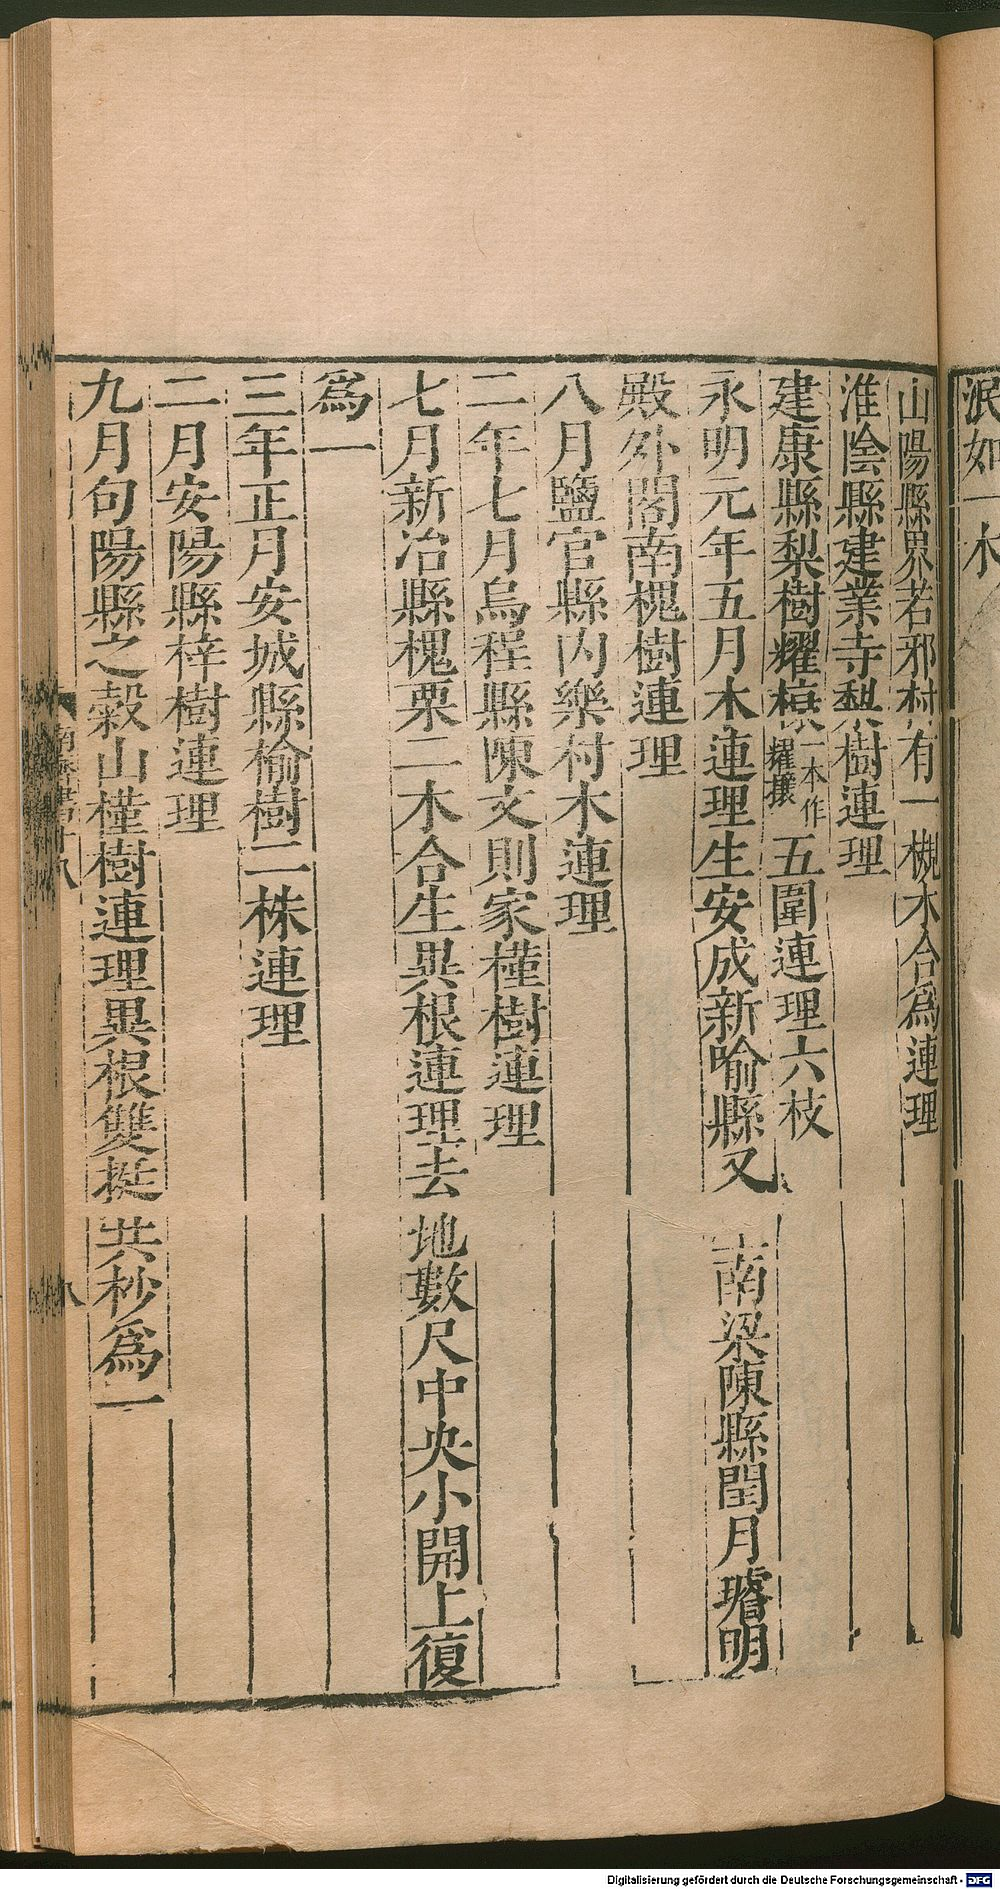 泯如一木
山陽縣界若邪村有一槻木合爲連理
淮陰縣建業寺梨樹連理
建康縣梨樹耀𣛮一本作耀攘五圍連理六枝
永明元年五月木連理生安成新喻縣又南梁陳縣閏月璿明
殿外閣南槐樹連理
八月鹽官縣内樂村木連理
二年七月烏程縣陳文則家槿樹連理
七月新冶縣槐栗二木合生異根連理去地數尺中央小開上復
爲一
三年正月安城縣榆樹二株連理
二月安陽縣梓樹連理
九月句陽縣之穀山槿樹連理異根雙挺共杪爲一
南齊書十八
八
Digitalisierung gefördert durch die Deutsche Forschungsgemeinschaft - DFG